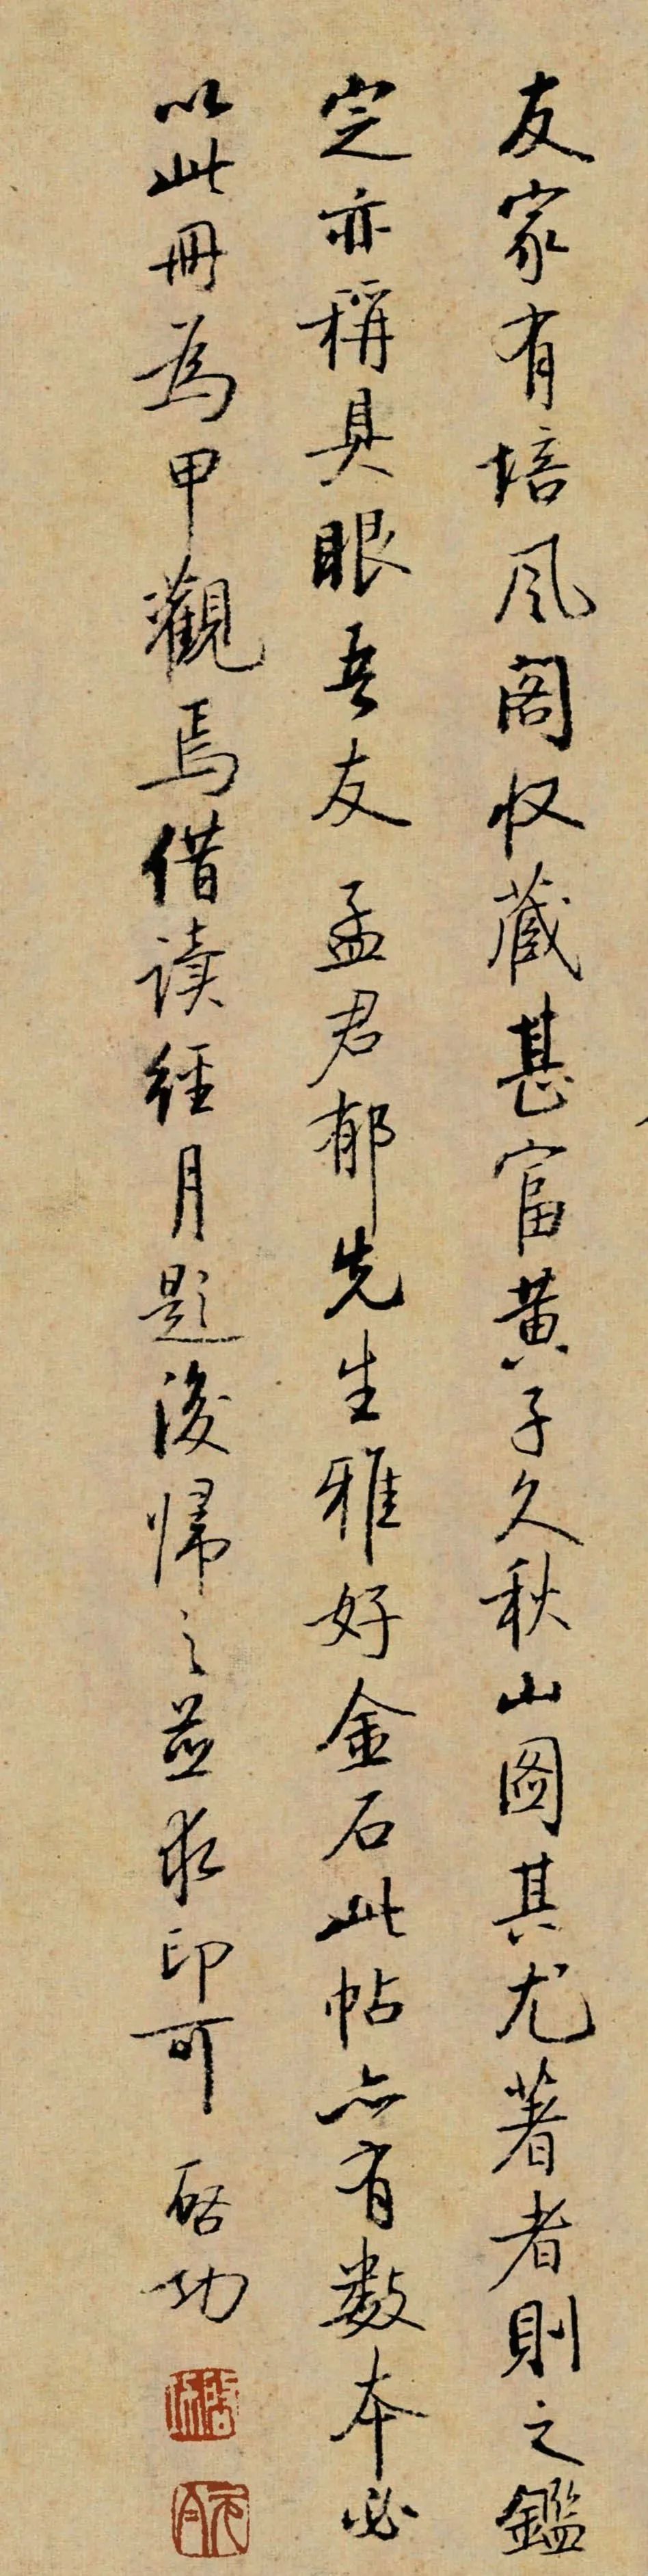 友家有培风阁收藏甚富黄子久秋山圖其尤著者則之鑑
定亦稱具眼吾友孟君郁先生雅好金石此帖亦有數本必
以此冊為甲觀焉借读經月題後帰之並求印可啓功